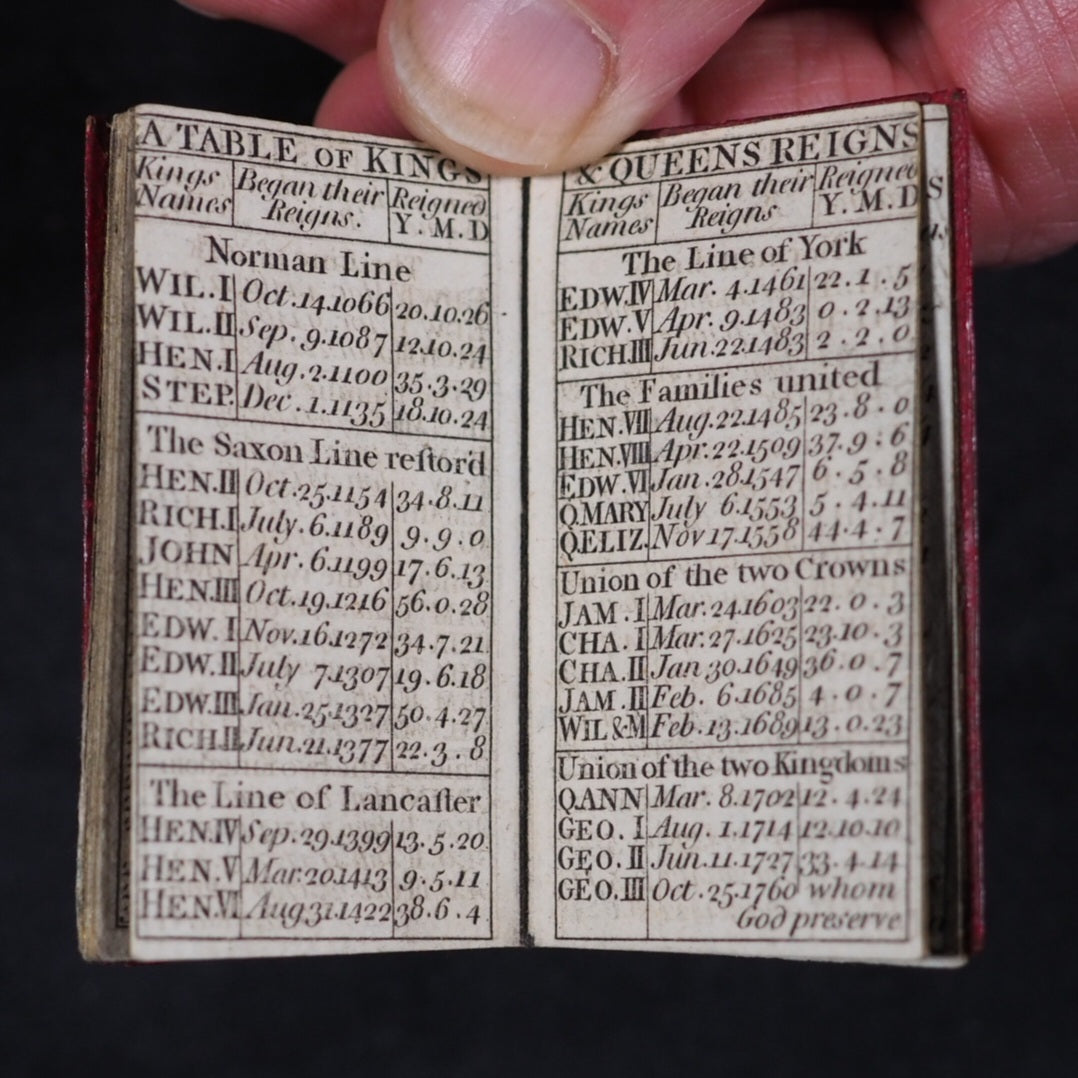 A TABLE OF KINGS
Kings Names Began their Reigns. Reigned Y. M. D
Norman Line
WIL. I Oct. 14.1066 20.10.26
WIL. II Sep. 9.1087 12.10.24
HEN. I Aug. 2.1100 35.3.29
STEP. Dec. 1.1135 18.10.24
The Saxon Line reſtor'd
HEN. II Oct. 25.1154 34.8.11
RICH. I July. 6.1189 9.9.0
JOHN Apr. 6.1199 17.6.13
HEN. III Oct. 19.1216 56.0.28
EDW. I Nov. 16.1272 34.7.21
EDW. II July 7.1307 19.6.18
EDW. III Jan. 25.1327 50.4.27
RICH. II Jun. 21.1377 22.3.8
The Line of Lancaſter
HEN. IV Sep. 29.1399 13.5.20
HEN. V Mar. 20.1413 9.5.11
HEN. VI Aug 31.1422 38.6.4
& QUEENS REIGNS
Kings Names Began their Reigns Reigned Y. M. D
The Line of York
EDW. IV Mar. 4.1461 22.1.5
EDW. V Apr. 9.1483 0.2.13
RICH. III Jun. 22.1483 2.2.0
The Families united
HEN. VII Aug. 22.1485 23.8.0
HEN. VIII Apr. 22.1509 37.9.6
EDW. VI Jan. 28.1547 6.5.8
Q. MARY July 6.1553 5.4.11
Q. ELIZ. Nov 17.1558 44.4.7
Union of the two Crowns
JAM. I Mar. 24.1603 22.0.3
CHA. I Mar. 27.1625 23.10.3
CHA. II Jan 30.1649 36.0.7
JAM. II Feb. 6.1685 4.0.7
WIL & M Feb. 13.1689 13.0.23
Union of the two Kingdoms
Q. ANN Mar. 8.1702 12.4.24
GEO. I Aug. 1.1714 12.10.10
GEO. II Jun. 11.1727 33.4.14
GEO. III Oct. 25.1760 whom
God preserve